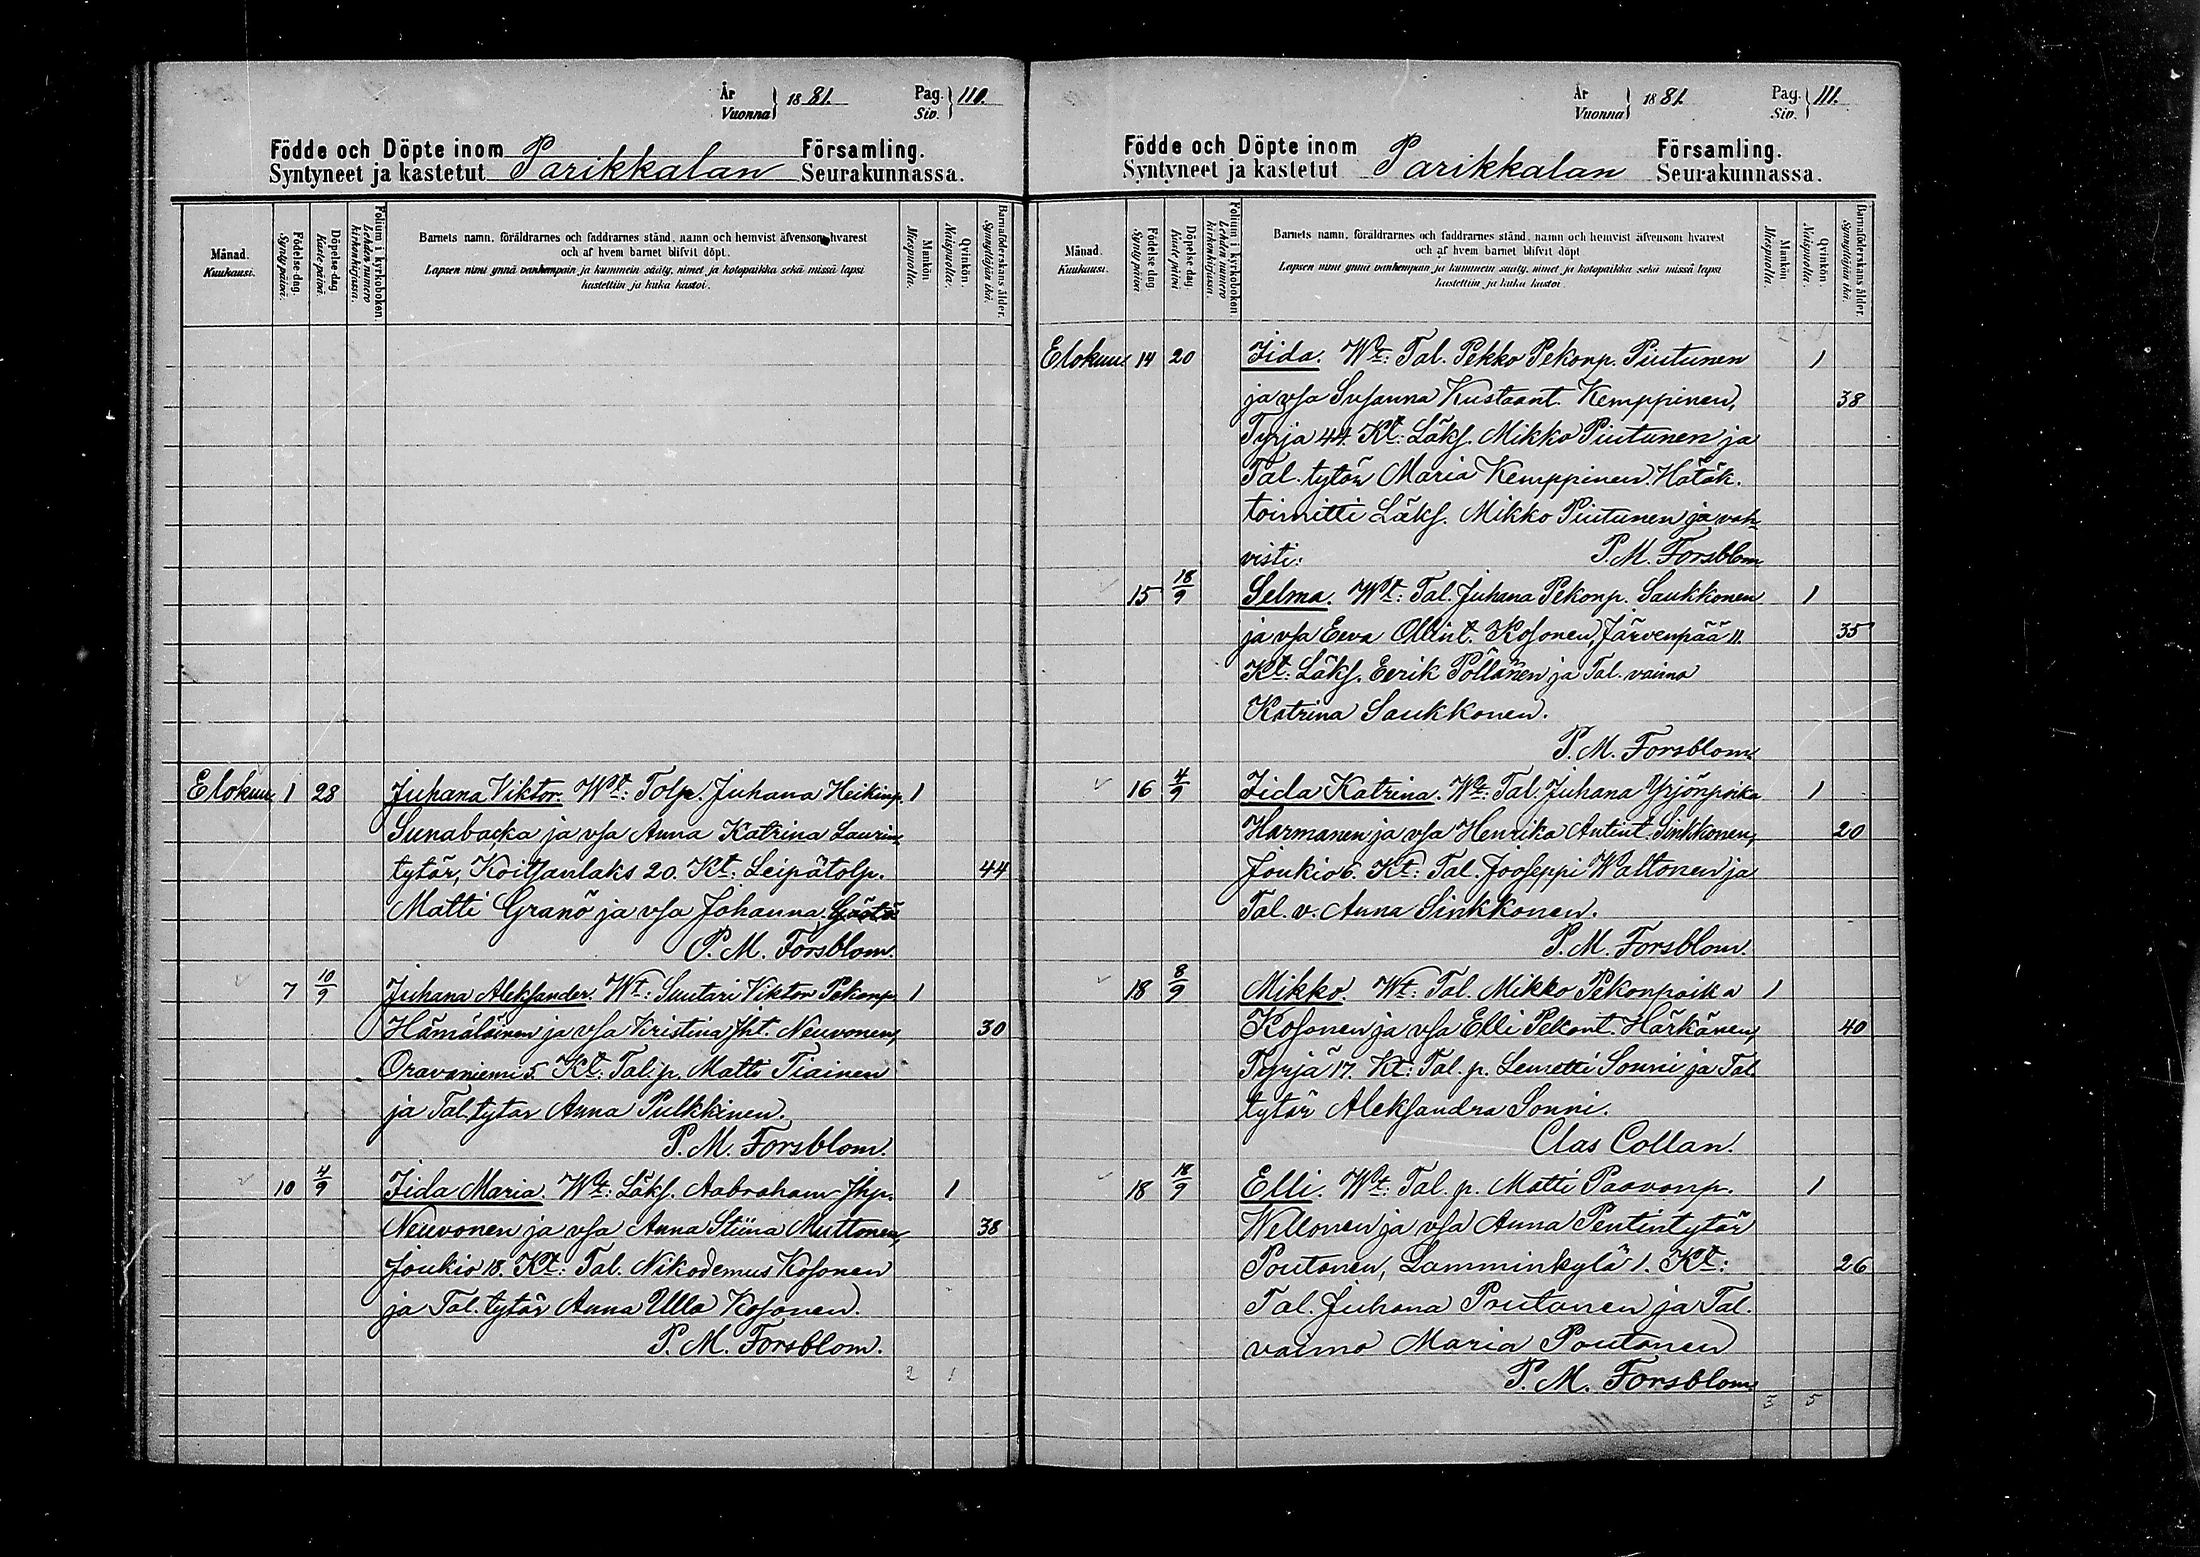 År
Vuonna
1881.
Pag.
Siv.
110.
Födde och Döpte inom
Syntyneet ja kastetut
Parikkalan
Församling.
Seurakunnassa.
Månad.
Kuukausi.
Födelse-dag.
Synty-päivä.
Döpelse-dag
Kaste-päivä.
Folium i kyrkoboken
Lehden numero
kirkonkirjassa.
Barnets namn, föräldrarnes och faddrarnes stånd, namn och hemvist äfvensom hvarest
och af hvem barnet blifvit döpt.
Lapsen nimi ynnä vanhempain ja kummein sääty, nimet ja kotopaikka sekä missä lapsi
kastettiin ja kuka kastoi.
Mankön.
Miespuolia.
Qvinkön.
Naispuolia.
Barnaföderskans ålder.
Synnyttäjän ikä.
Elokuu 1 28 Juhana Viktor. Wt: Tolp. Juhana Heikinp. 1
Sunabacka ja vsa Anna Katrina Laurin-
tytär, Koitsanlaks 20. Kt: Leipätolp. 44
Matti Granö ja vsa Johanna
P. M. Forsblom.
7 10/9 Juhana Aleksander. Wt: Suutari Viktor Pekonp. 1
Hämäläinen ja vsa Kristina Jht. Neuvonen, 30
Oravaniemi 5. Kt: Tal. p. Matti Tiainen
ja Tal. tytär Anna Pulkkinen.
P. M. Forsblom.
10 4/9 Iida Maria. Wt: Läks. Aabraham Jhp. 1
Neuvonen ja vsa Anna Stiina Muttonen, 38
Joukio 18. Kt: Tal. Nikodemus Kosonen
ja Tal. tytär Anna Ulla Kosonen.
P. M. Forsblom.
2 1
År
Vuonna
1881.
Pag.
Siv.
111.
Födde och Döpte inom
Syntyneet ja kastetut
Parikkalan
Församling.
Seurakunnassa.
Månad.
Kuukausi.
Födelse-dag.
Synty-päivä
Döpelse-dag
Kaste-päivä
Folium i kyrkoboken
Lehden numero
kirkonkirjassa.
Barnets namn, föräldrarnes och faddrarnes stånd, namn och hemvist äfvensom hvarest
och af hvem barnet blifvit döpt
Lapsen nimi ynnä vanhempain ja kummein sääty, nimet ja kotopaikka sekä missä lapsi
kastettiin ja kuka kastoi.
Mankön.
Miespuolia.
Qvinkön.
Naispuolia.
Barnaföderskans ålder.
Synnyttäjän ikä.
Elokuu 14 20 Iida. Wt: Tal. Pekko Pekonp. Piutunen 1
ja vsa Susanna Kustaant. Kemppinen, 38
Tyrja 44. Kt: Läks. Mikko Piutunen ja
Tal. tytär Maria Kemppinen. Hätäk.
toimitti Läks. Mikko Piutunen ja vah-
visti: P. M. Forsblom
15 18/9 Selma. Wt: Tal. Juhana Pekonp. Saukkonen 1
ja vsa Eeva Ollint. Kosonen, Järvenpää 11. 35
Kt: Läks. Eerik Pöllänen ja Tal. vaimo
Katrina Saukkonen.
P. M. Forsblom.
16 4/9 Iida Katrina. Wt: Tal. Juhana Yrjönpoika 1
Harmanen ja vsa Henrika Antint. Sinkkonen, 20
Joukio 6. Kt: Tal. Jooseppi Waltonen ja
Tal. v. Anna Sinkkonen.
P. M. Forsblom.
18 8/9 Mikko. Wt: Tal. Mikko Pekonpoika 1
Kosonen ja vsa Elli Pekont. Härkänen, 40
Tyrjä 17. Kt: Tal. p. Lemetti Sonni ja Tal.
tytär Aleksandra Sonni.
Clas Collan.
18 18/9 Elli. Wt: Tal. p. Matti Paavonp. 1
Wellonen ja vsa Anna Pentintytär
Poutanen, Lamminkylä 1. Kt: 26
Tal. Juhana Poutanen ja Tal.
vaimo Maria Poutanen
P. M. Forsblom.
3 5